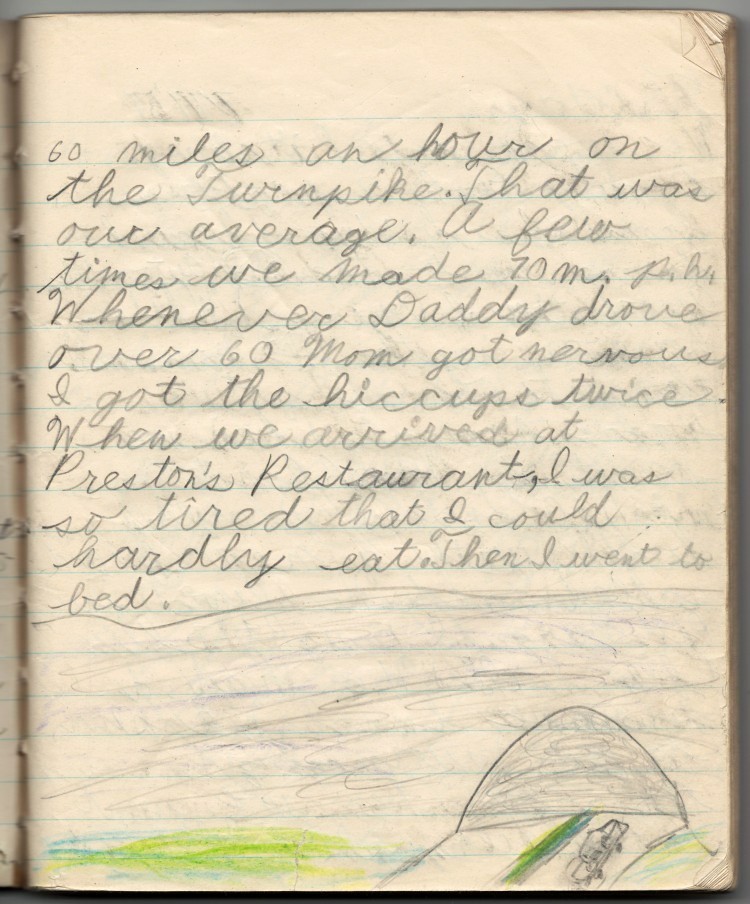 60 miles an hour on
the Turnpike. That was
our average. A few
times we made 70 m. p. h.
Whenever Daddy drove
over 60 Mom got nervous
I got the hiccups twice.
When we arrived at
Preston's Restaurant, I was
so tired that I could
hardly eat. Then I went to
bed.